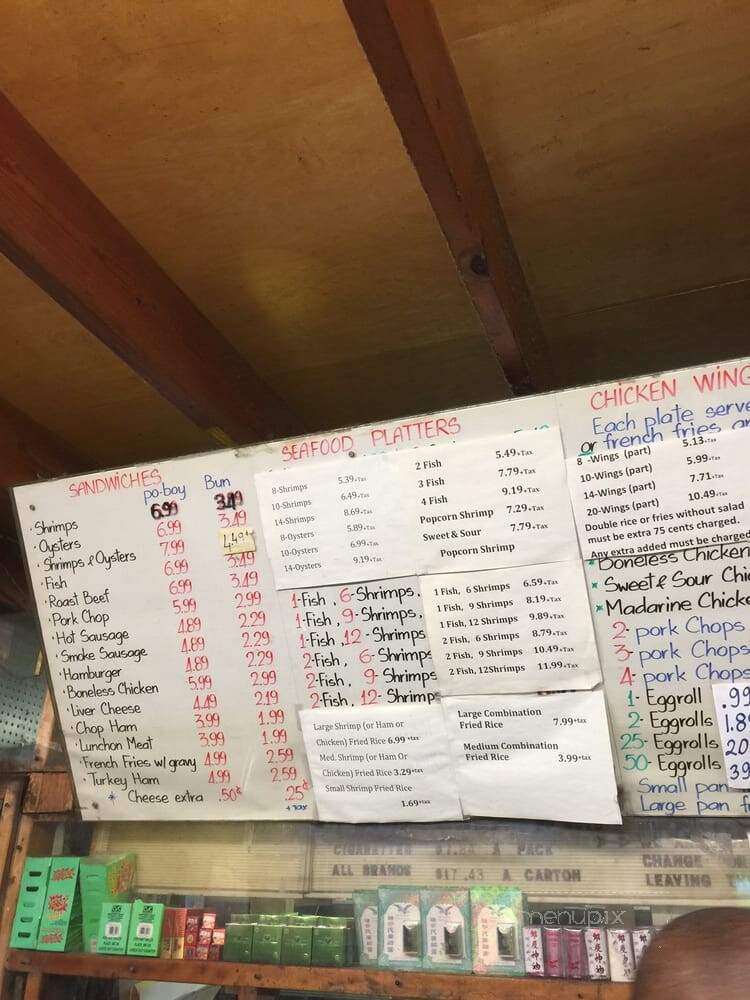 SANDWICHES
po-boy Bun
· Shrimps 6.99 3.49
· Oysters 6.99 3.49
· Shrimps & Oysters 7.99 4.49
· Fish 6.99 3.49
· Roast Beef 6.99 3.49
· Pork Chop 5.99 2.99
· Hot Sausage 4.89 2.29
· Smoke Sausage 4.89 2.29
· Hamburger 4.89 2.29
· Boneless Chicken 5.99 2.99
· Liver Cheese 4.49 2.19
· Chop Ham 3.99 1.99
· Lunchon Meat 3.99 1.99
· French Fries w/ gravy 4.99 2.59
· Turkey Ham 4.99 2.59
* Cheese extra .50¢ .25¢
+ TAX
SEAFOOD PLATTERS
8-Shrimps 5.39+Tax
10-Shrimps 6.49+Tax
14-Shrimps 8.69+Tax
8-Oysters 5.89+Tax
10-Oysters 6.99+Tax
14-Oysters 9.19+Tax
2 Fish 5.49+Tax
3 Fish 7.79+Tax
4 Fish 9.19+Tax
Popcorn Shrimp 7.29+Tax
Sweet & Sour 7.79+Tax
Popcorn Shrimp
1-Fish, 6-Shrimps,
1-Fish, 9-Shrimps,
1-Fish, 12-Shrimps
2-Fish, 6-Shrimps
2-Fish, 9-Shrimps
2-Fish, 12-Shrimps
1 Fish, 6 Shrimps 6.59+Tax
1 Fish, 9 Shrimps 8.19+Tax
1 Fish, 12 Shrimps 9.89+Tax
2 Fish, 6 Shrimps 8.79+Tax
2 Fish, 9 Shrimps 10.49+Tax
2 Fish, 12Shrimps 11.99+Tax
Large Shrimp (or Ham or
Chicken) Fried Rice 6.99 +tax
Med. Shrimp (or Ham Or
Chicken) Fried Rice 3.29+tax
Small Shrimp Fried Rice
1.69+tax
Large Combination
Fried Rice 7.99+tax
Medium Combination
Fried Rice 3.99+tax
CHICKEN WING
Each plate serve
or french fries an
8 -Wings (part) 5.13+Tax
10-Wings (part) 5.99+Tax
14-Wings (part) 7.71+Tax
20-Wings (part) 10.49+Tax
Double rice or fries without salad
must be extra 75 cents charged.
Any extra added must be charged
* Boneless Chicken
* Sweet & Sour Chi
* Madarine Chicke
2- pork Chops
3- pork Chops
4- pork Chops
1- Eggroll .99
2- Eggrolls 1.8
25- Eggrolls 20.
50- Eggrolls 39
Small pan
Large pan f
CIGARETTES $1.84 A PACK
ALL BRANDS $17.43 A CARTON
CHANGE
LEAVING TH
menupix